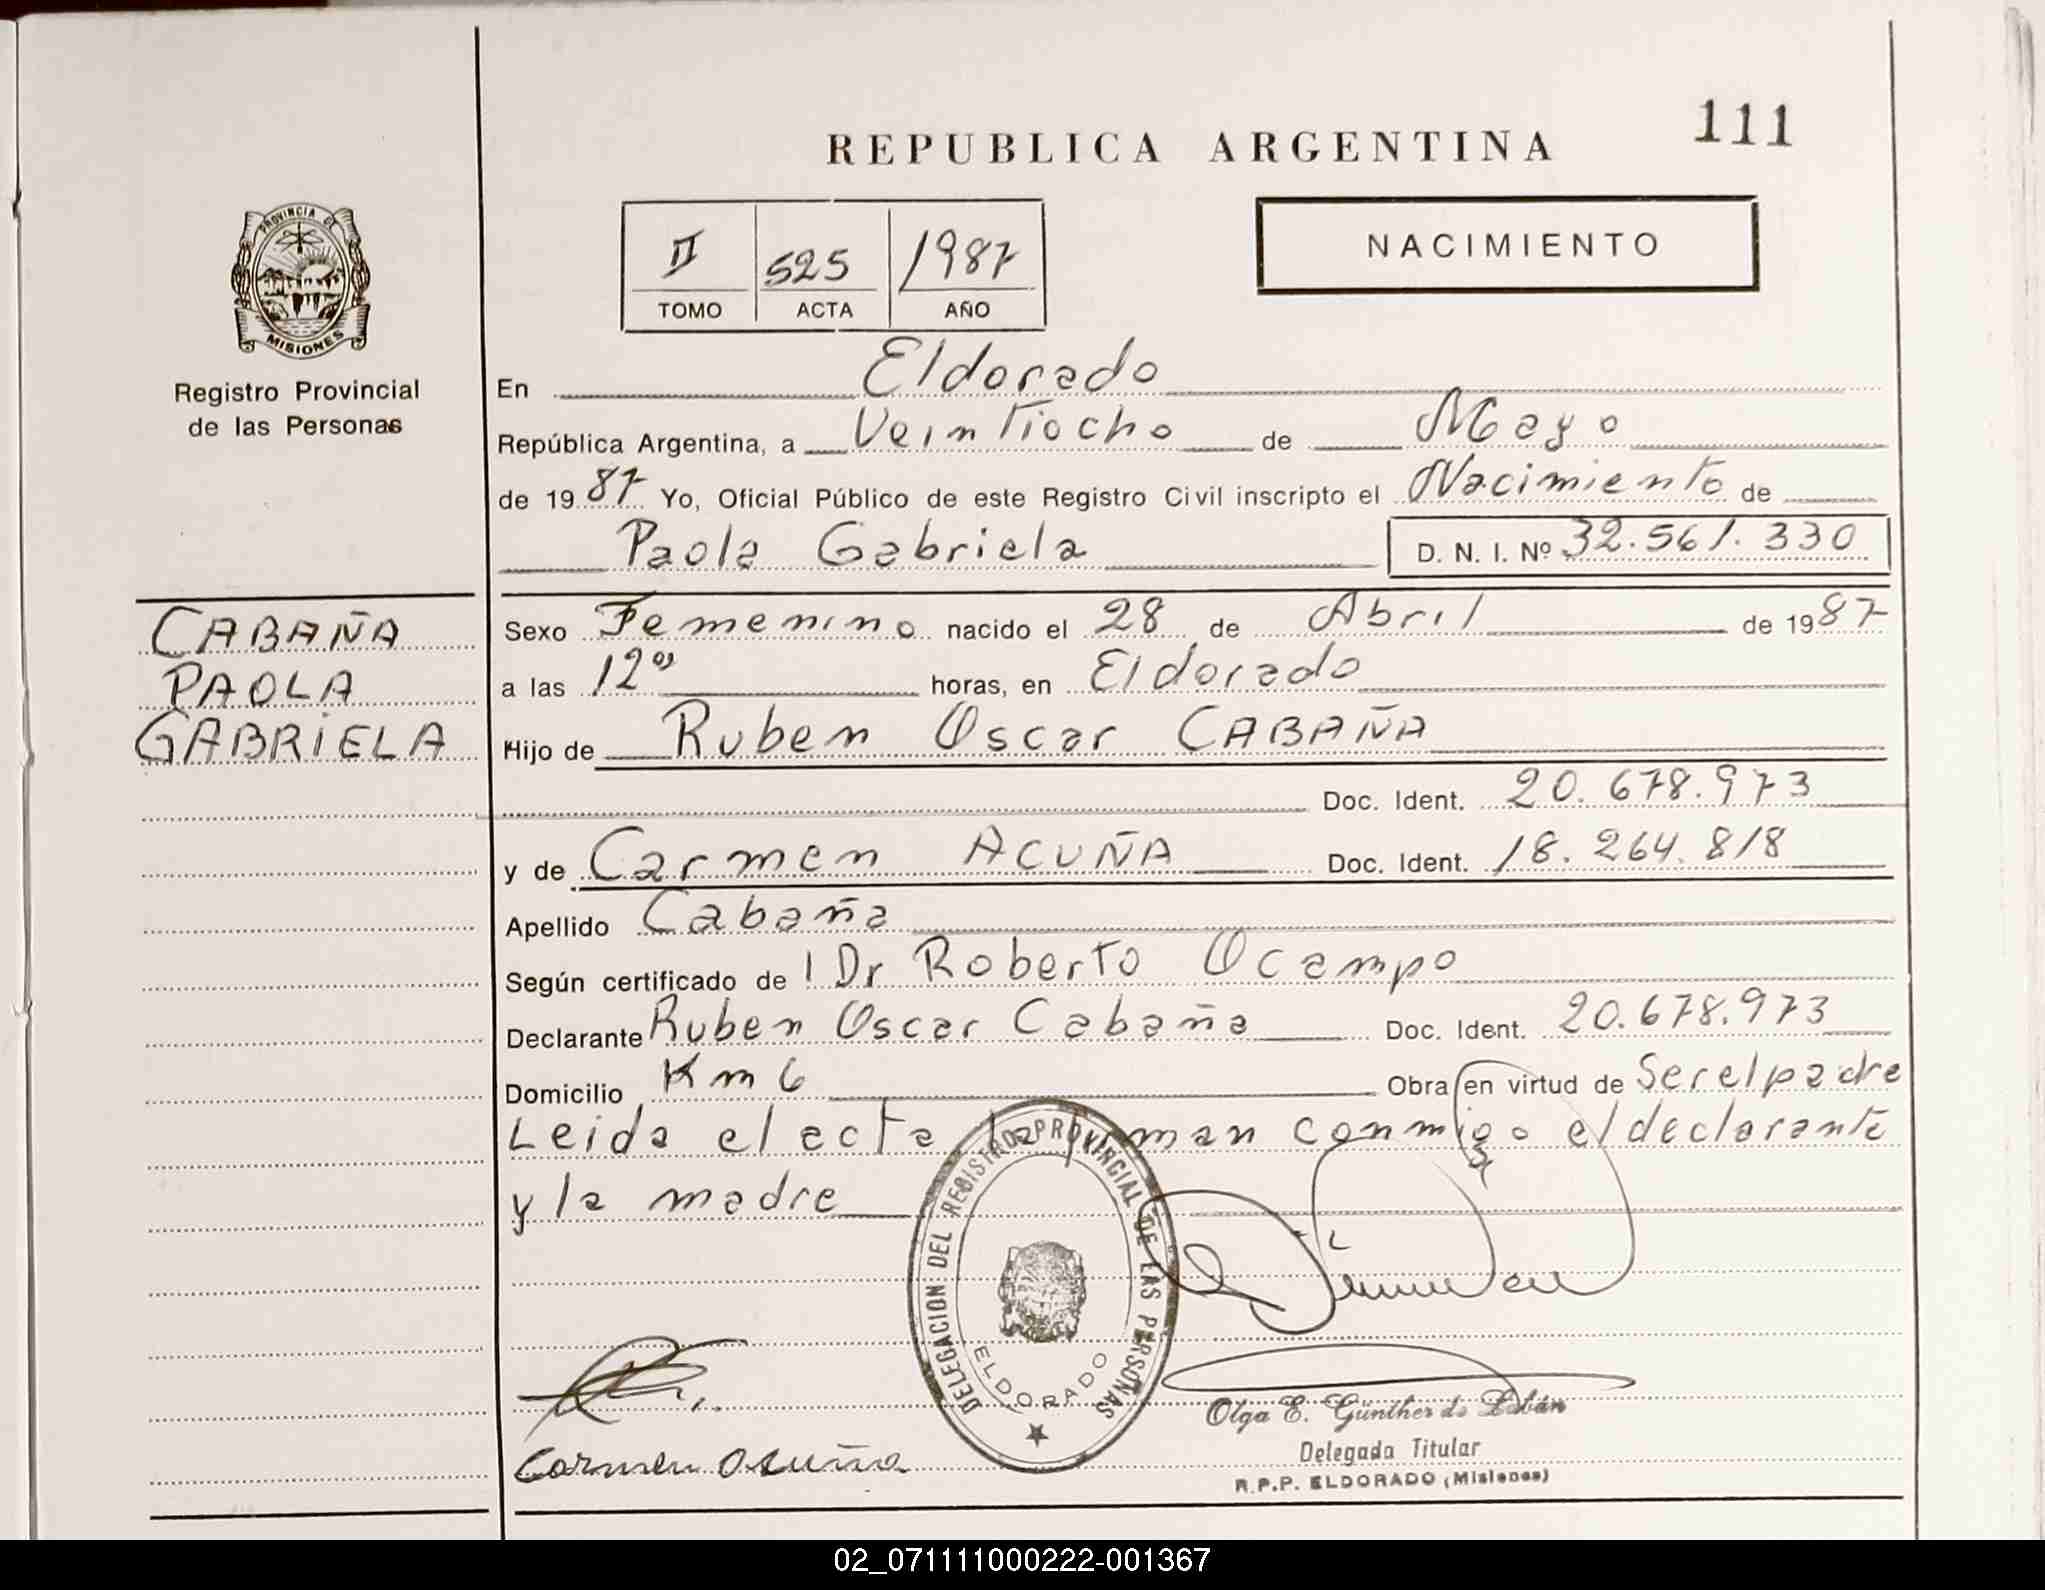 111
REPUBLICA ARGENTINA
NACIMIENTO
II 525 1987
TOMO ACTA AÑO
PROVINCIA DE
MISIONES
Registro Provincial
de las Personas
En Eldorado
República Argentina, a Veintiocho de Mayo
de 1987 Yo, Oficial Público de este Registro Civil inscripto el Nacimiento de
Paola Gabriela D. N. I. Nº 32.561.330
CABAÑA
PAOLA
GABRIELA
Sexo Femenino nacido el 28 de Abril de 1987
a las 12⁰⁰ horas, en Eldorado
Hijo de Ruben Oscar CABAÑA
Doc. Ident. 20.678.973
y de Carmen ACUÑA Doc. Ident. 18.264.818
Apellido Cabaña
Según certificado de l Dr Roberto Ocampo
Declarante Ruben Oscar Cabaña Doc. Ident. 20.678.973
Domicilio Km 6 Obra en virtud de Ser el padre
Leida el acta la firman conmigo el declarante
y la madre
DELEGACION DEL REGISTRO PROVINCIAL DE LAS PERSONAS
ELDORADO
Carmen Acuña
Olga E. Günther de Labán
Delegada Titular
R.P.P. ELDORADO (Misiones)
02_071111000222-001367